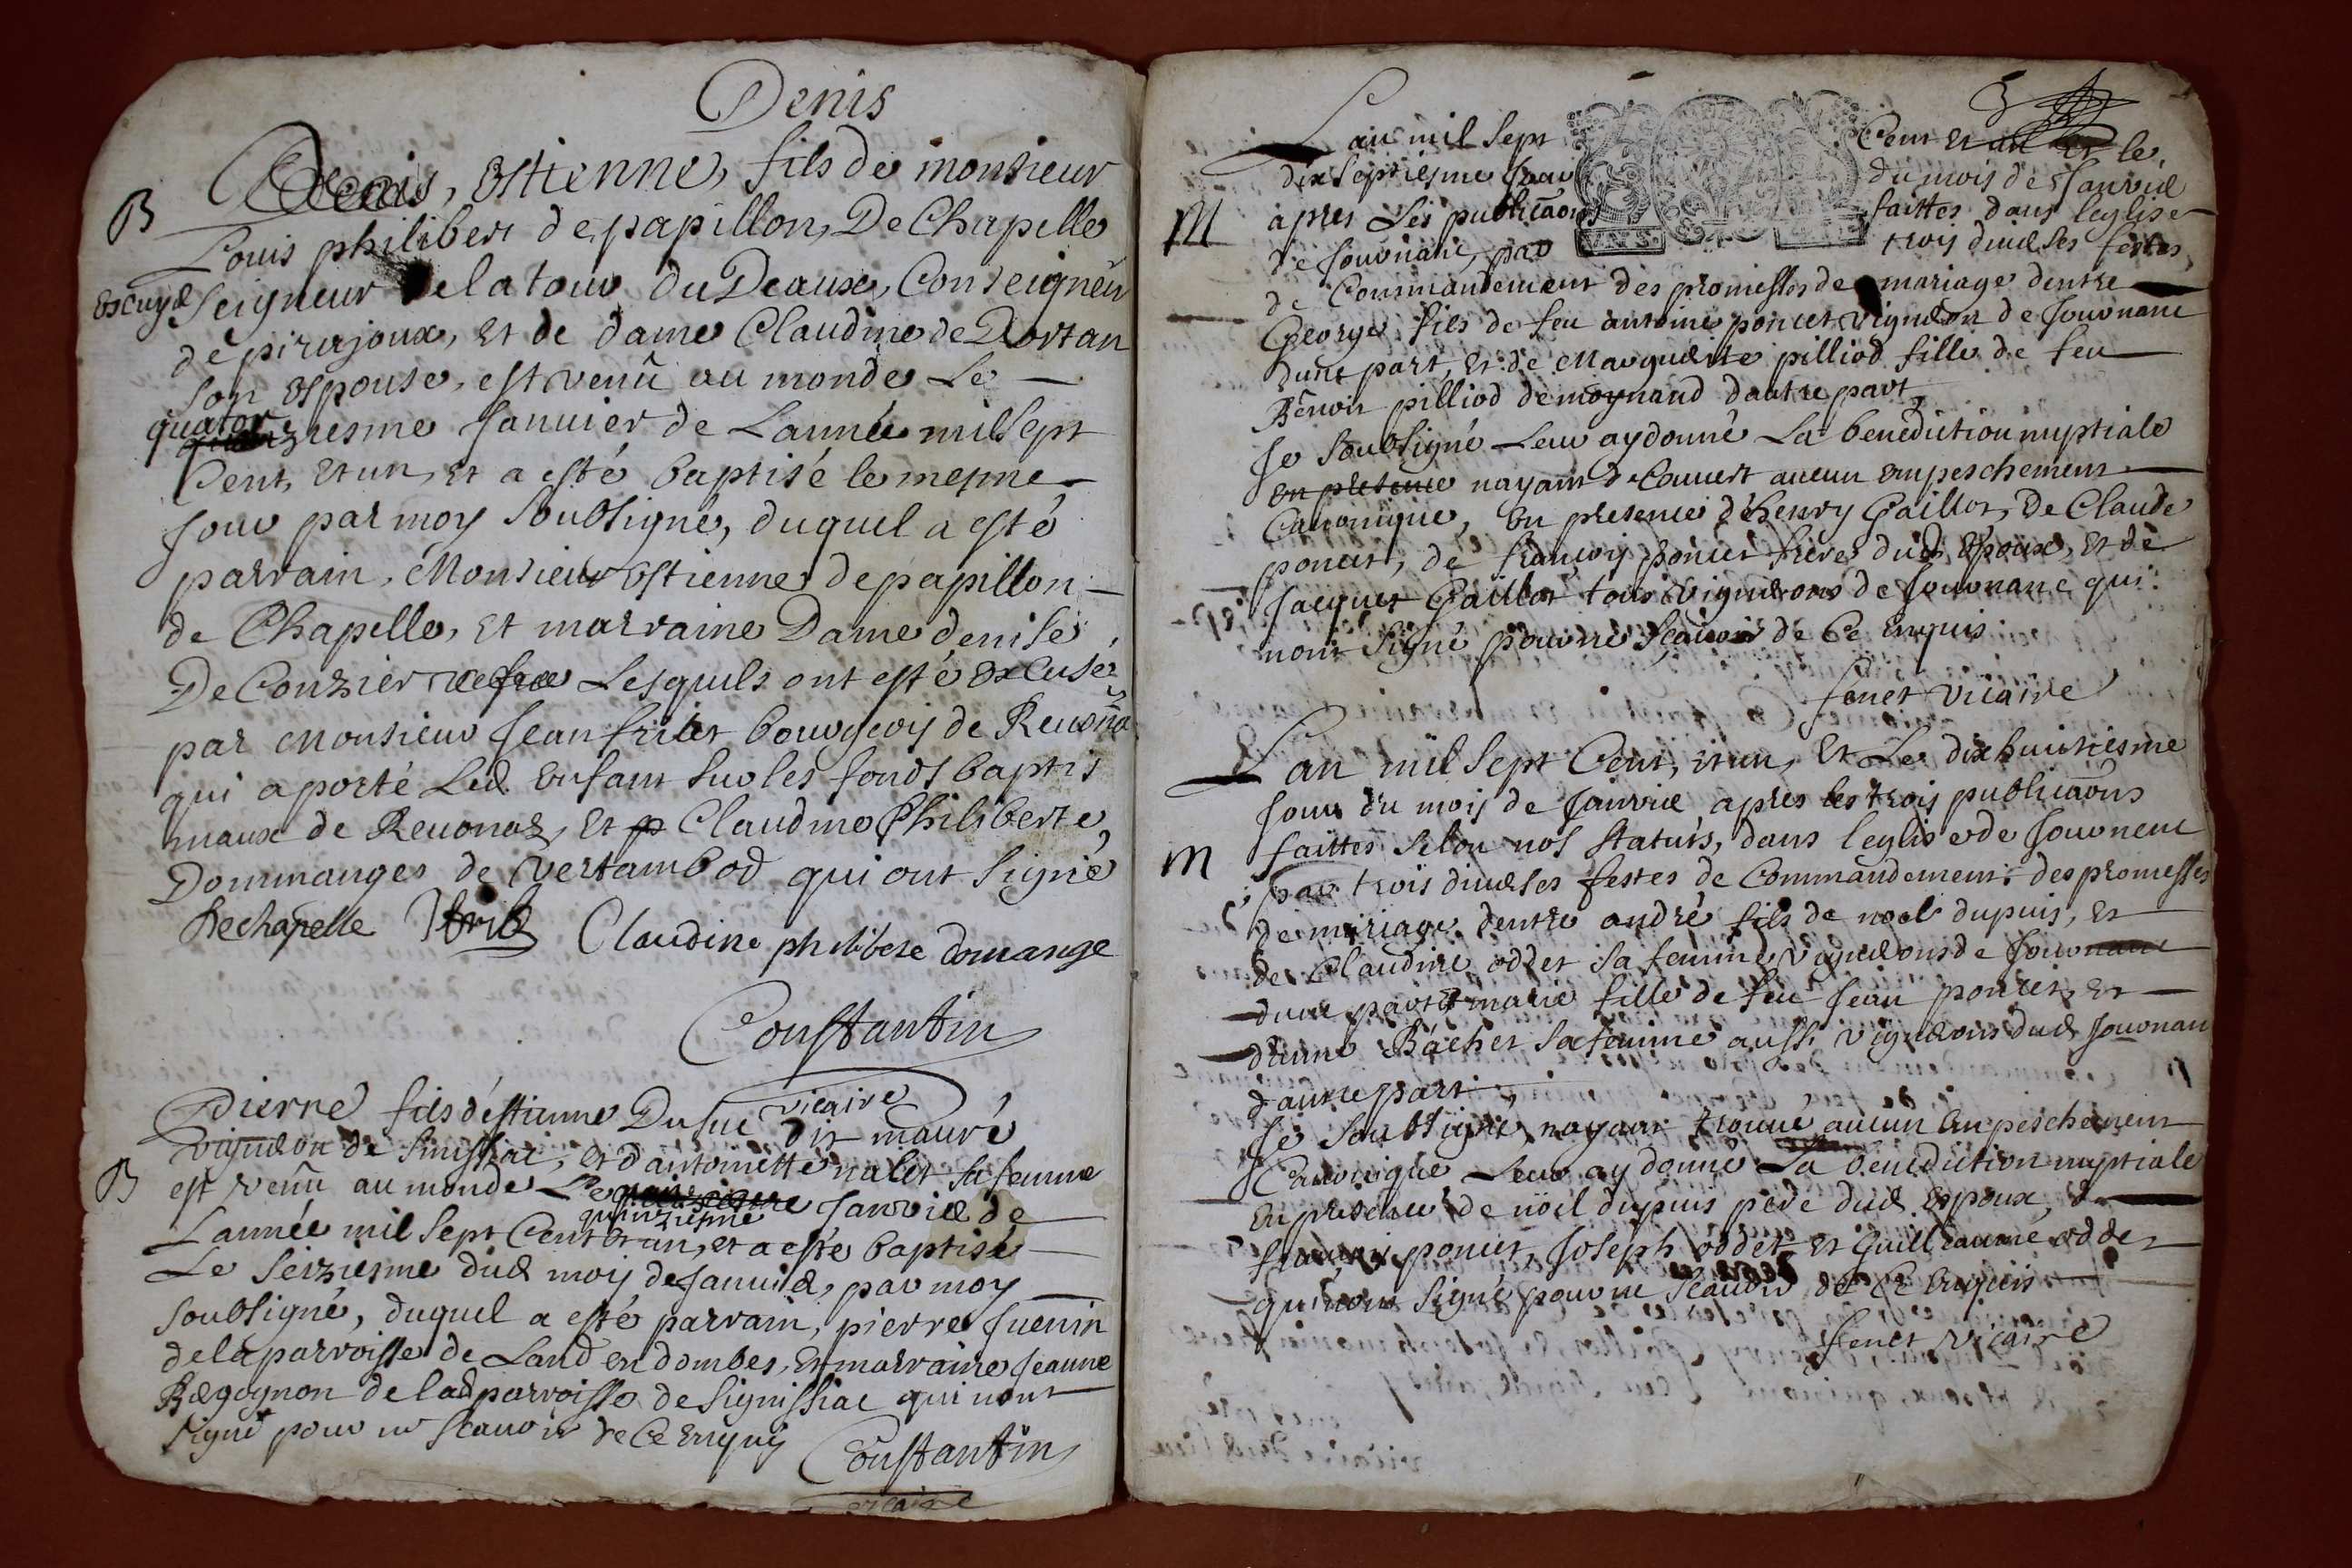 Denis
Denis, Estienne, fils de monsieur
B
Louis philibert de papillon, De Chapelle
Escuyer Seigneur de la tour du Deaux, Conseigneur
de pirajoux, et de dame Claudine de Dortan
son espouse, est venû au monde Le
quator
ziesme Januier de Lannée mil Sept
Cent, et un, et a esté baptisé le mesme
Jour par moy Soubsigné, duquel a esté
parrain, Monsieur Estienne de papillon
de Chapelle, et marraine Dame denise
De Conzier Lesquels ont esté Excusés
par Monsieur Jean bourgeois de
qui a porté Led enfant sur les fonds baptis
maux de Reuonas, et Claudine Philiberte
Dommanges de Vertambod qui ont Signé
Dechapelle Claudine philiberte domange
Constantin
vicaire
Pierre fils d'estienne Dusuc dit mauré
vigneron de, et d'antoinette nalet sa femme
B
est venû au monde Le Januier de
quinziesme
Lannée mil Sept Cent et un, et a esté baptisé
Le Seiziesme dud moy de Januier, par moy
Soubsigné, duquel a esté parrain, pierre Juenin
de la parroisse de Land en dombes, et marraine Jeanne
de lad parroisse de Signissiac qui nont
signé pour ne scauoir de Ce Enquis
Constantin
vicaire
3
Lan mil Sept Cent et un et le
dix Septiesme Jour du mois de Januier
M
apres Les publicaons faittes dans leglise
de Journanc, par trois diuerses festes
de Commandement des promesses de mariage dentre
George fils de feu antoine poncet vigneron de Journanc
dune part, et de Marguerite pilliod fille de feu
Benoit pilliod de moynand dautre part,
Je Soubsigné Leur ay donné La benediction nuptiale
en presence nayant decouuert aucun empeschement
Canonique, En presence d'henry Gaillot, De Claude
poncet, de françois poncet freres dud Epoux, et de
Jacques Gaillot tous vignerons de Journanc qui
nont Signé pour ne Sçauoir de Ce Enquis
Jenet vicaire
Lan mil Sept Cent, et un, et Le dix huitiesme
Jour du mois de Januier apres les trois publicaons
faittes Selon nos Statuts, dans leglise de Journenc
M
par trois diuerses festes de Commandement des promesses
de mariage dentre andré fils de noel dupuis, et
de Claudine oddet sa femme vignerons de Journanc
dune part et marie fille de feu Jean poncet, et
danne Bachet sa femme aussi vignerons dud Journan
dautre part,
Je Soubsigné nayant trouué aucun Empeschement
Canonique Leur ay donné La benediction nuptiale
En presence de noël dupuis pere dud Espoux, de
françois poncet, Joseph oddet et Guillaume oddet
qui nont Signé pour ne scauoir de Ce Enquis
Jenet vicaire